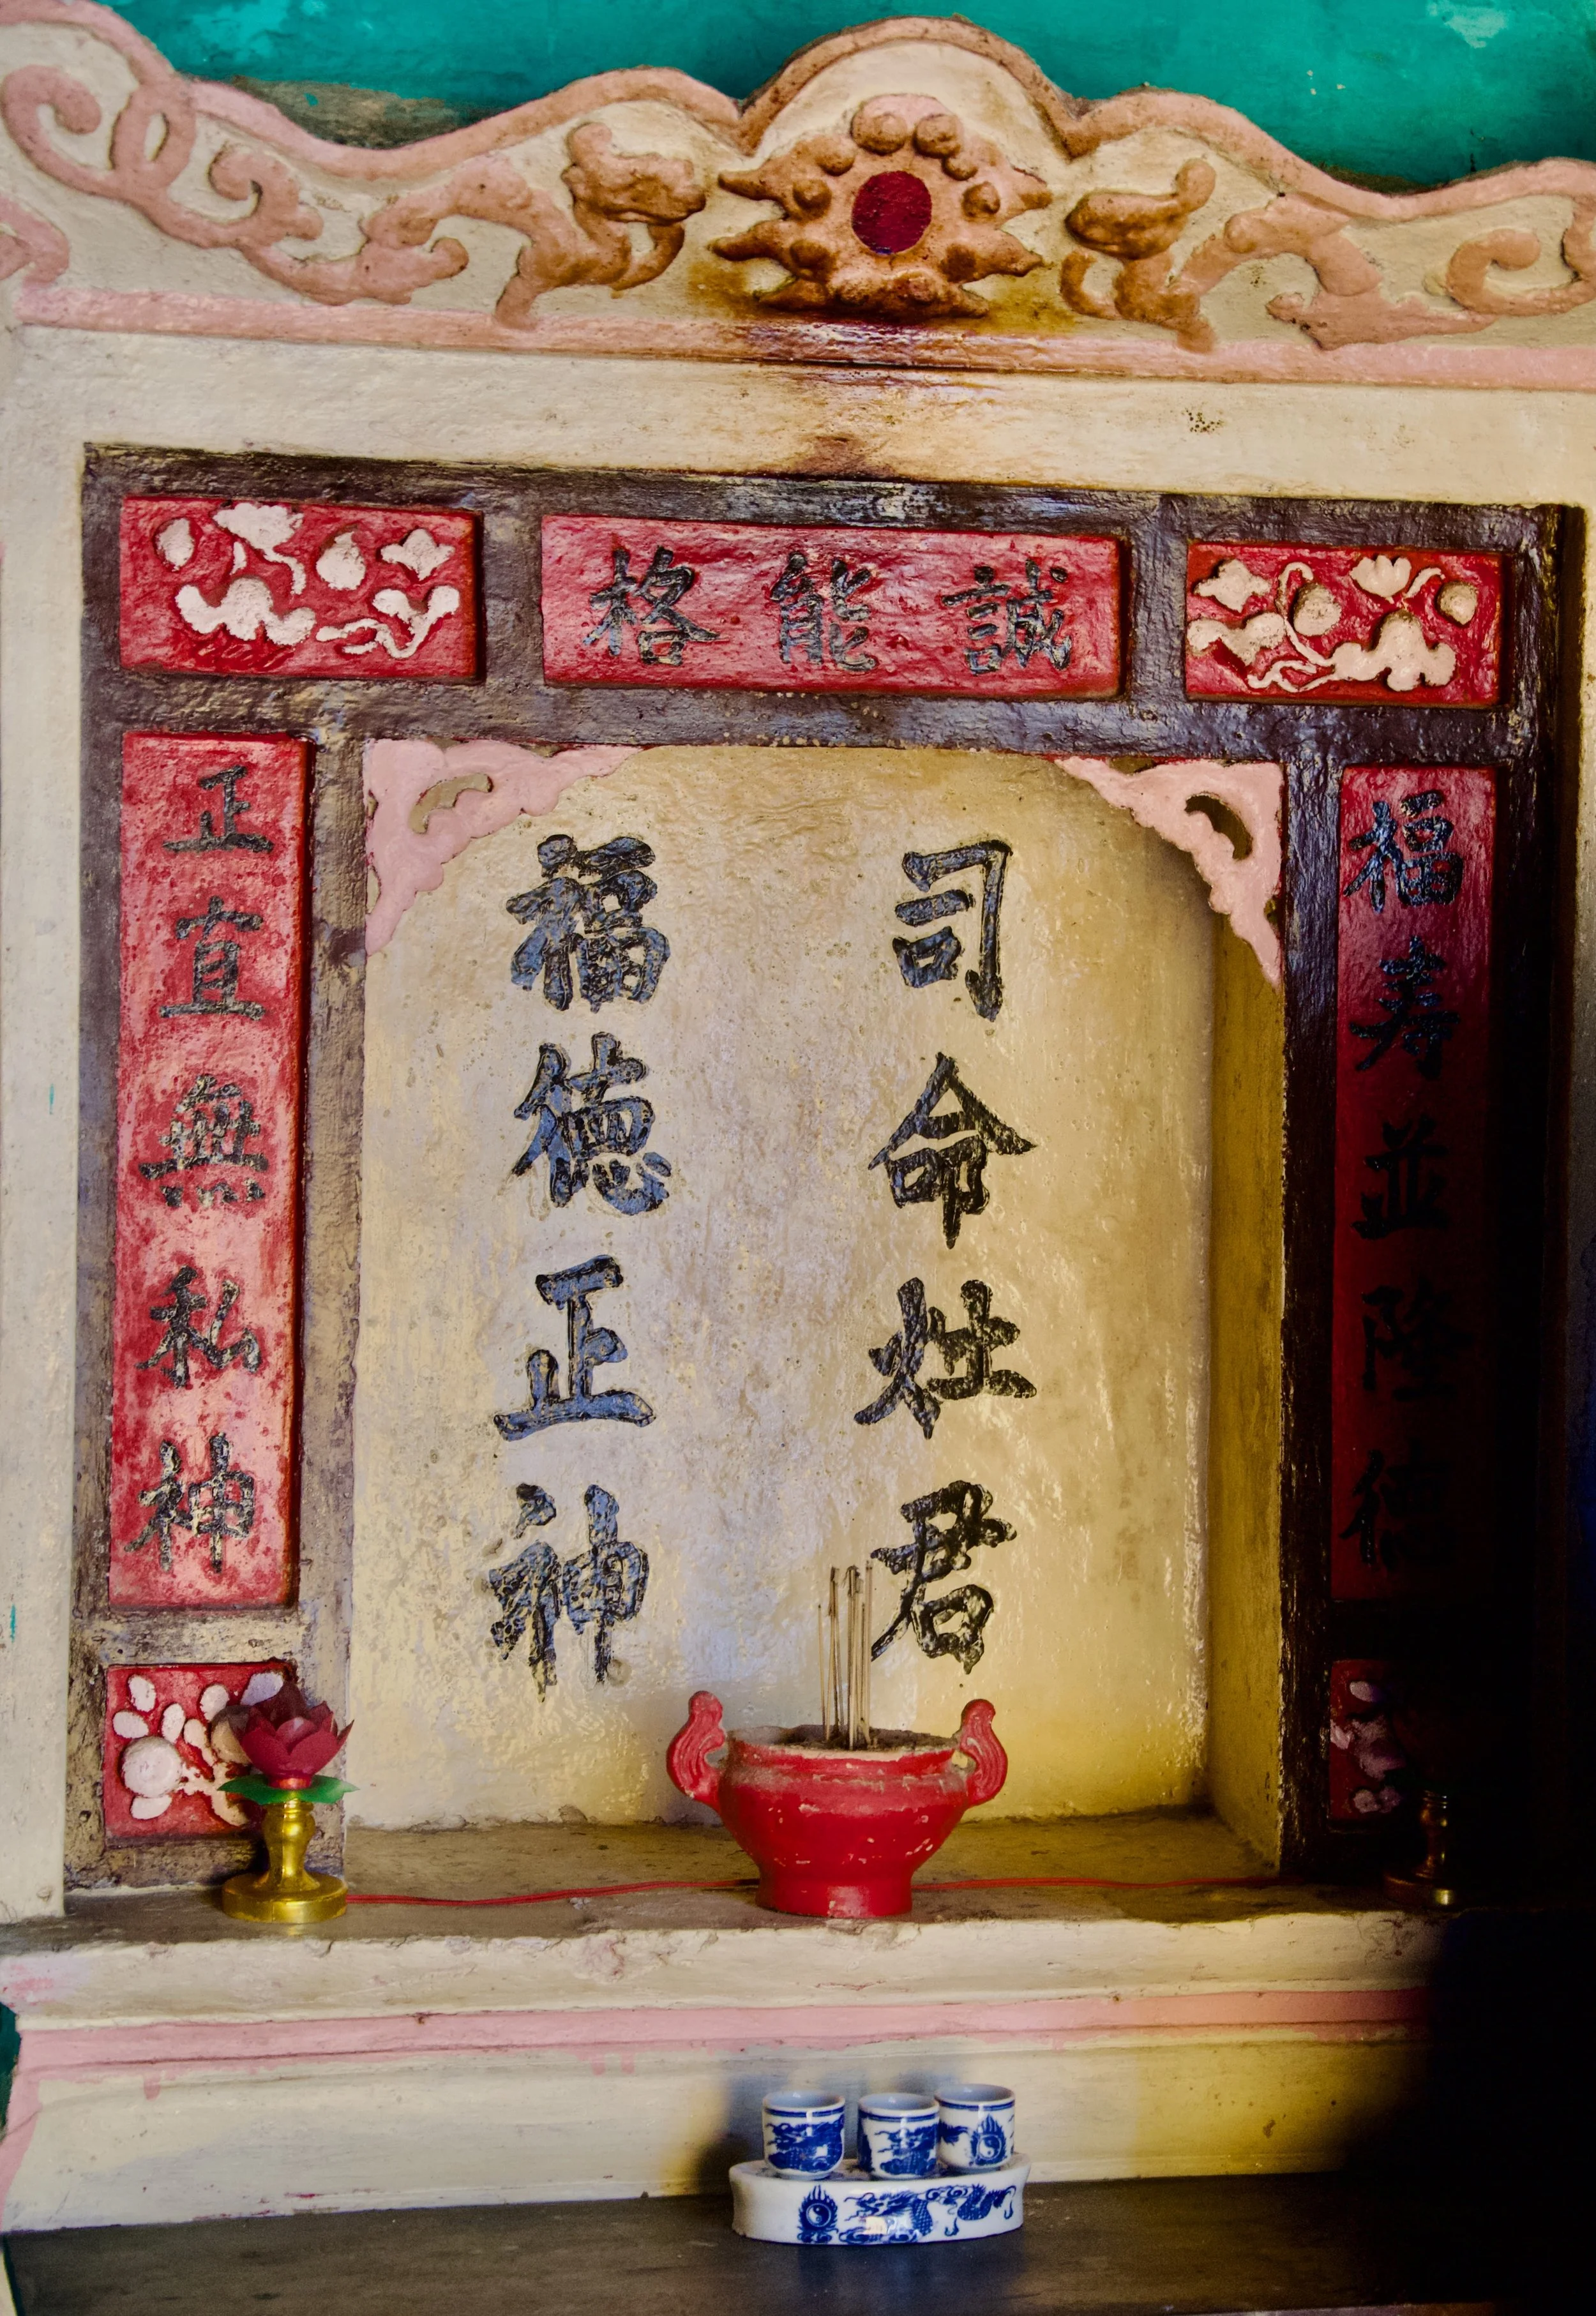 誠能格
福寿並隆德
司命灶君
福德正神
正直無私神